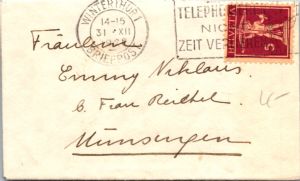 WINTERTHUR 1
14-15
31 XII
BRIEFPOST
TELEPHON
NIC
ZEIT VE
HELVETIA
5
Fräulein
Emmy Niklaus
b. Frau Reichel
Münsingen